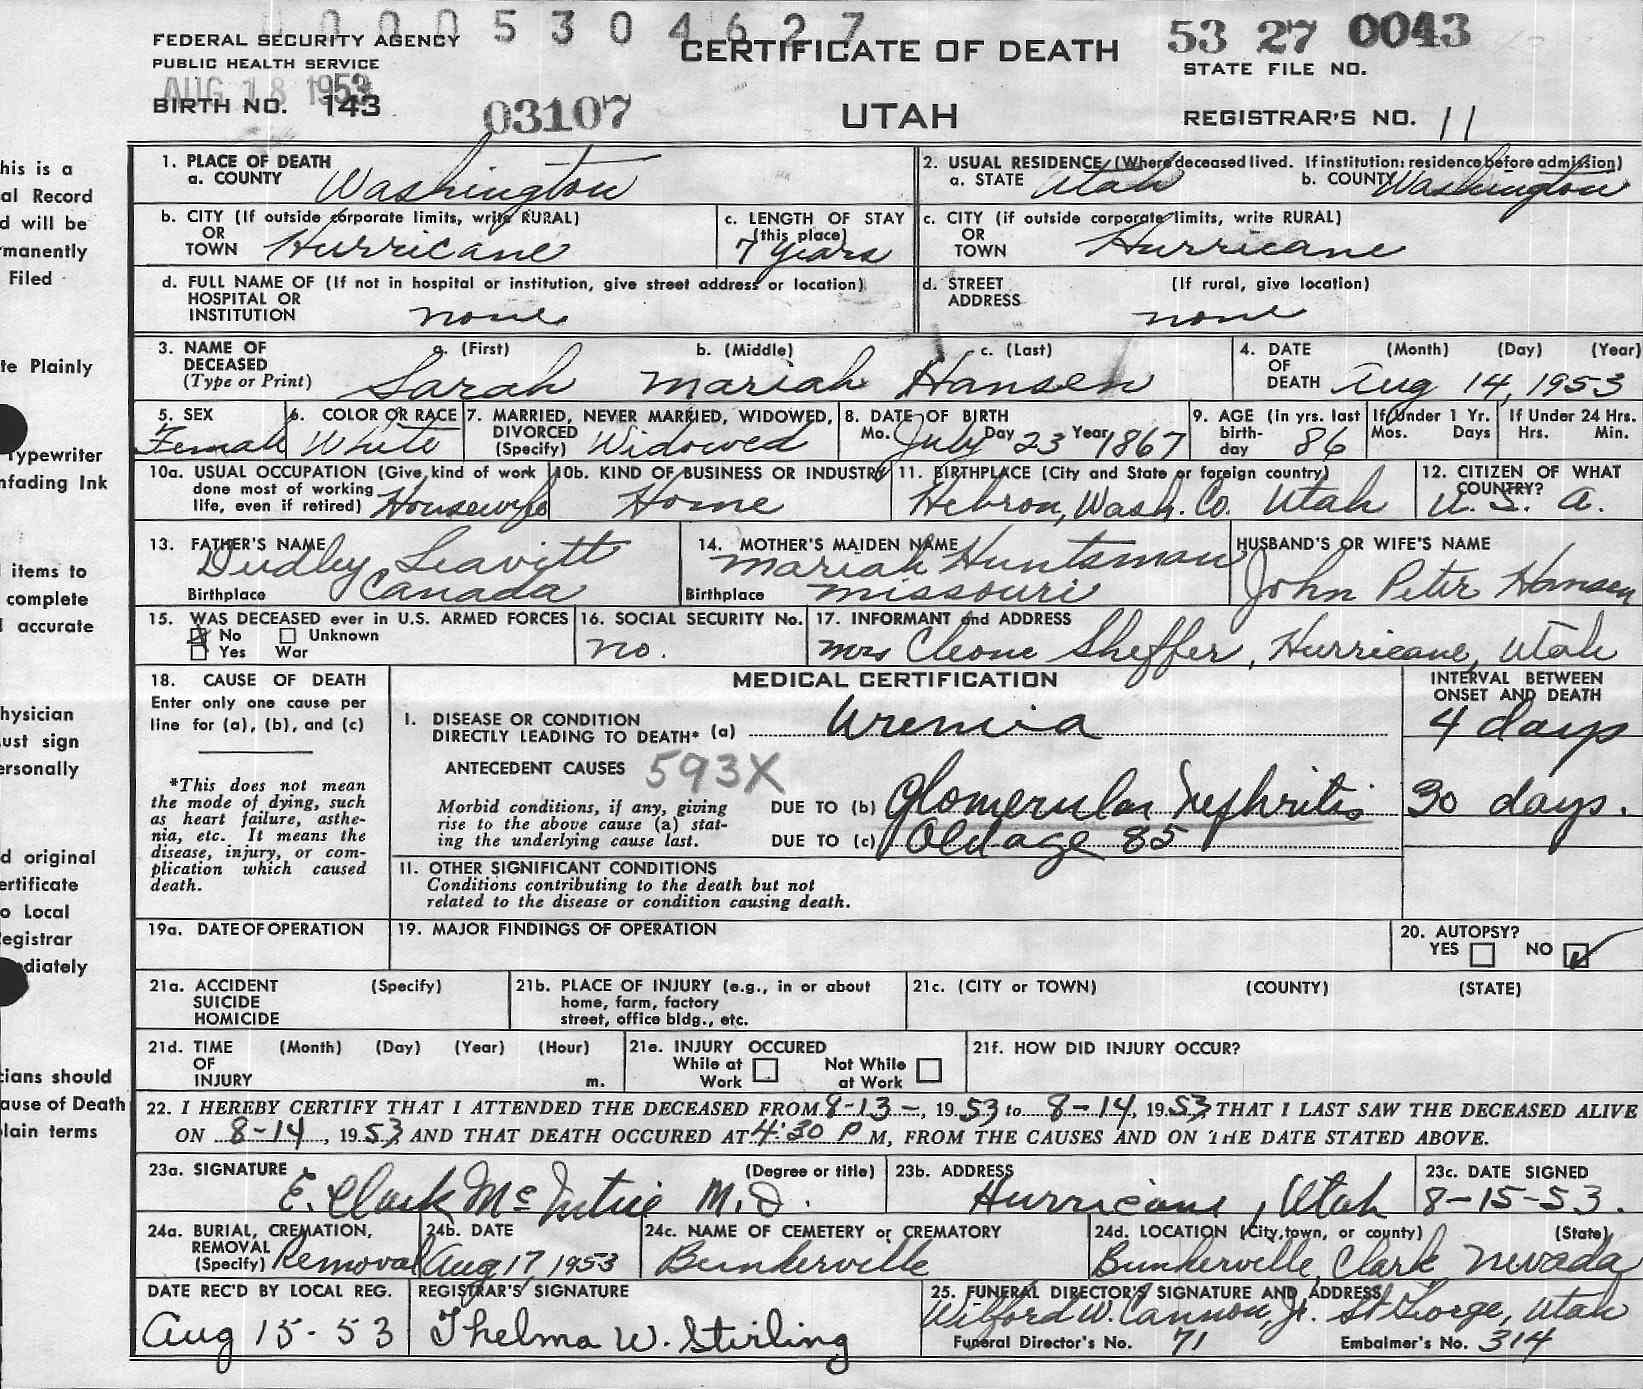 0 0 0 5 3 0 4 6 2 7
FEDERAL SECURITY AGENCY
PUBLIC HEALTH SERVICE
AUG 18 1953
BIRTH NO. 143
03107
CERTIFICATE OF DEATH
UTAH
53 27 0043
STATE FILE NO.
REGISTRAR'S NO. 11
his is a
al Record
d will be
rmanently
Filed
te Plainly
Typewriter
nfading Ink
items to
complete
accurate
hysician
ust sign
ersonally
d original
ertificate
o Local
egistrar
diately
cians should
ause of Death
lain terms
1. PLACE OF DEATH
a. COUNTY Washington
2. USUAL RESIDENCE (Where deceased lived. If institution: residence before admission)
a. STATE Utah b. COUNTY Washington
b. CITY (If outside corporate limits, write RURAL)
OR
TOWN Hurricane
c. LENGTH OF STAY
(this place)
7 years
c. CITY (if outside corporate limits, write RURAL)
OR
TOWN Hurricane
d. FULL NAME OF (If not in hospital or institution, give street address or location)
HOSPITAL OR
INSTITUTION none
d. STREET (If rural, give location)
ADDRESS none
3. NAME OF a. (First) b. (Middle) c. (Last)
DECEASED
(Type or Print) Sarah Mariah Hansen
4. DATE (Month) (Day) (Year)
OF
DEATH Aug 14, 1953
5. SEX
Female
6. COLOR OR RACE
White
7. MARRIED, NEVER MARRIED, WIDOWED,
DIVORCED
(Specify) Widowed
8. DATE OF BIRTH
Mo. July Day 23 Year 1867
9. AGE (in yrs. last
birth-
day 86
If Under 1 Yr.
Mos. Days
If Under 24 Hrs.
Hrs. Min.
10a. USUAL OCCUPATION (Give kind of work
done most of working
life, even if retired) Housewife
10b. KIND OF BUSINESS OR INDUSTRY
Home
11. BIRTHPLACE (City and State or foreign country)
Hebron, Wash. Co. Utah
12. CITIZEN OF WHAT
COUNTRY?
U. S. A.
13. FATHER'S NAME
Dudley Leavitt
Birthplace Canada
14. MOTHER'S MAIDEN NAME
Mariah Huntsman
Birthplace Missouri
HUSBAND'S OR WIFE'S NAME
John Peter Hansen
15. WAS DECEASED ever in U.S. ARMED FORCES
No Unknown
Yes War
16. SOCIAL SECURITY No.
no.
17. INFORMANT and ADDRESS
Mrs Cleone Sheffer, Hurricane, Utah
18. CAUSE OF DEATH
Enter only one cause per
line for (a), (b), and (c)
*This does not mean
the mode of dying, such
as heart failure, asthe-
nia, etc. It means the
disease, injury, or com-
plication which caused
death.
MEDICAL CERTIFICATION
INTERVAL BETWEEN
ONSET AND DEATH
I. DISEASE OR CONDITION
DIRECTLY LEADING TO DEATH* (a) Uremia 4 days
ANTECEDENT CAUSES 593X
Morbid conditions, if any, giving
rise to the above cause (a) stat-
ing the underlying cause last.
DUE TO (b) Glomerular Nephritis 30 days.
DUE TO (c) Old age 85
II. OTHER SIGNIFICANT CONDITIONS
Conditions contributing to the death but not
related to the disease or condition causing death.
19a. DATE OF OPERATION
19. MAJOR FINDINGS OF OPERATION
20. AUTOPSY?
YES NO
21a. ACCIDENT (Specify)
SUICIDE
HOMICIDE
21b. PLACE OF INJURY (e.g., in or about
home, farm, factory
street, office bldg., etc.
21c. (CITY or TOWN) (COUNTY) (STATE)
21d. TIME (Month) (Day) (Year) (Hour)
OF
INJURY m.
21e. INJURY OCCURED
While at Not While
Work at Work
21f. HOW DID INJURY OCCUR?
22. I HEREBY CERTIFY THAT I ATTENDED THE DECEASED FROM 8-13-, 19 53 to 8-14, 19 53 THAT I LAST SAW THE DECEASED ALIVE
ON 8-14, 19 53 AND THAT DEATH OCCURED AT 4:30 P M, FROM THE CAUSES AND ON THE DATE STATED ABOVE.
23a. SIGNATURE (Degree or title)
E. Clark McIntire M.D.
23b. ADDRESS
Hurricane, Utah
23c. DATE SIGNED
8-15-53.
24a. BURIAL, CREMATION,
REMOVAL
(Specify) Removal
24b. DATE
Aug 17, 1953
24c. NAME OF CEMETERY or CREMATORY
Bunkerville
24d. LOCATION (City, town, or county) (State)
Bunkerville, Clark Nevada
DATE REC'D BY LOCAL REG.
Aug 15-53
REGISTRAR'S SIGNATURE
Thelma W. Stirling
25. FUNERAL DIRECTOR'S SIGNATURE AND ADDRESS
Wilford W. Cannon, Jr. St George, Utah
Funeral Director's No. 71 Embalmer's No. 314